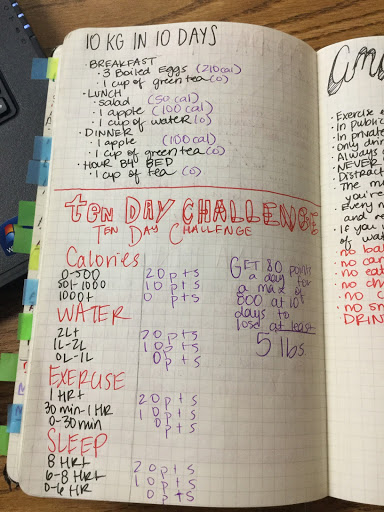 10 KG IN 10 DAYS
• BREAKFAST
• 3 Boiled Eggs (210 cal)
• 1 cup of green tea (0)
• LUNCH
• salad (50 cal)
• 1 apple (100 cal)
• 1 cup of water (0)
• DINNER
• 1 apple (100 cal)
• 1 cup of green tea (0)
• HOUR B4 BED
• 1 cup of tea (0)
ten DAY CHALLENGE
TEN DAY CHALLENGE
Calories
0-500 20 pts
501-1000 10 pts
1000+ 0 pts
WATER
2L+ 20 pts
1L-2L 10 pts
0L-1L 0 pts
EXERCISE
1 HR+ 20 pts
30 min-1 HR 10 pts
0-30 min 0 pts
SLEEP
8 HR+ 20 pts
6-8 HR+ 10 pts
0-6 HR 0 pts
GET 80 points
a day for
a max of
800 at 10
days to
lose at least
5 lbs
Exercise
• In public
• In private
• Only drin
• Always
• NEVER
• Distract
• The m
you're
• Every
and
• If you
of wat
• no
• no
• no eat
• no ch
• no
• no
• DRIN